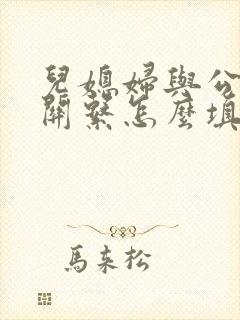 兒媳婦與公
關繫怎麼填
馬來松